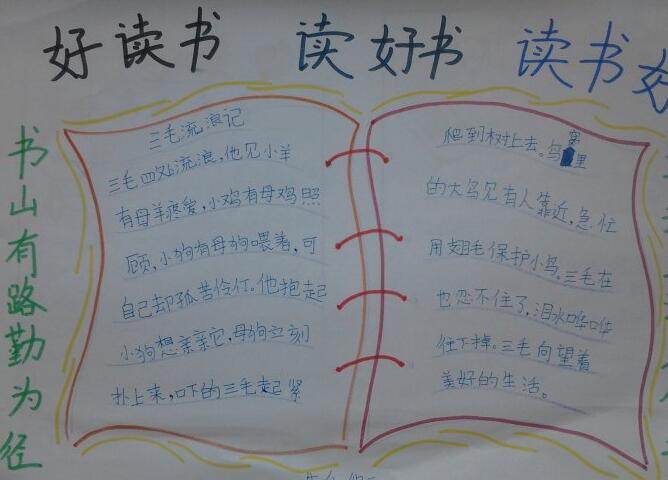 好读书 读好书 读书
书山有路勤为径
三毛流浪记
三毛四处流浪，他见小羊
有母羊疼爱，小鸡有母鸡照
顾，小狗有母狗喂着，可
自己却孤苦伶仃。他抱起
小狗想亲亲它，母狗立刻
扑上来，吓的三毛起紧
爬到树上去。鸟窝里
的大鸟见有人靠近，急忙
用翅毛保护小鸟。三毛在
也忍不住了，泪水哗哗
往下掉。三毛向望着
美好的生活。